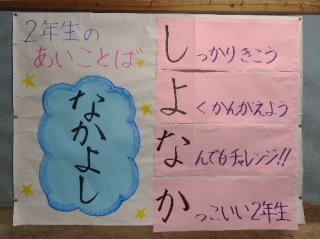 2年生の
あいことば
なかよし
しっかりきこう
よくかんがえよう
なんでもチャレンジ!!
かっこいい2年生